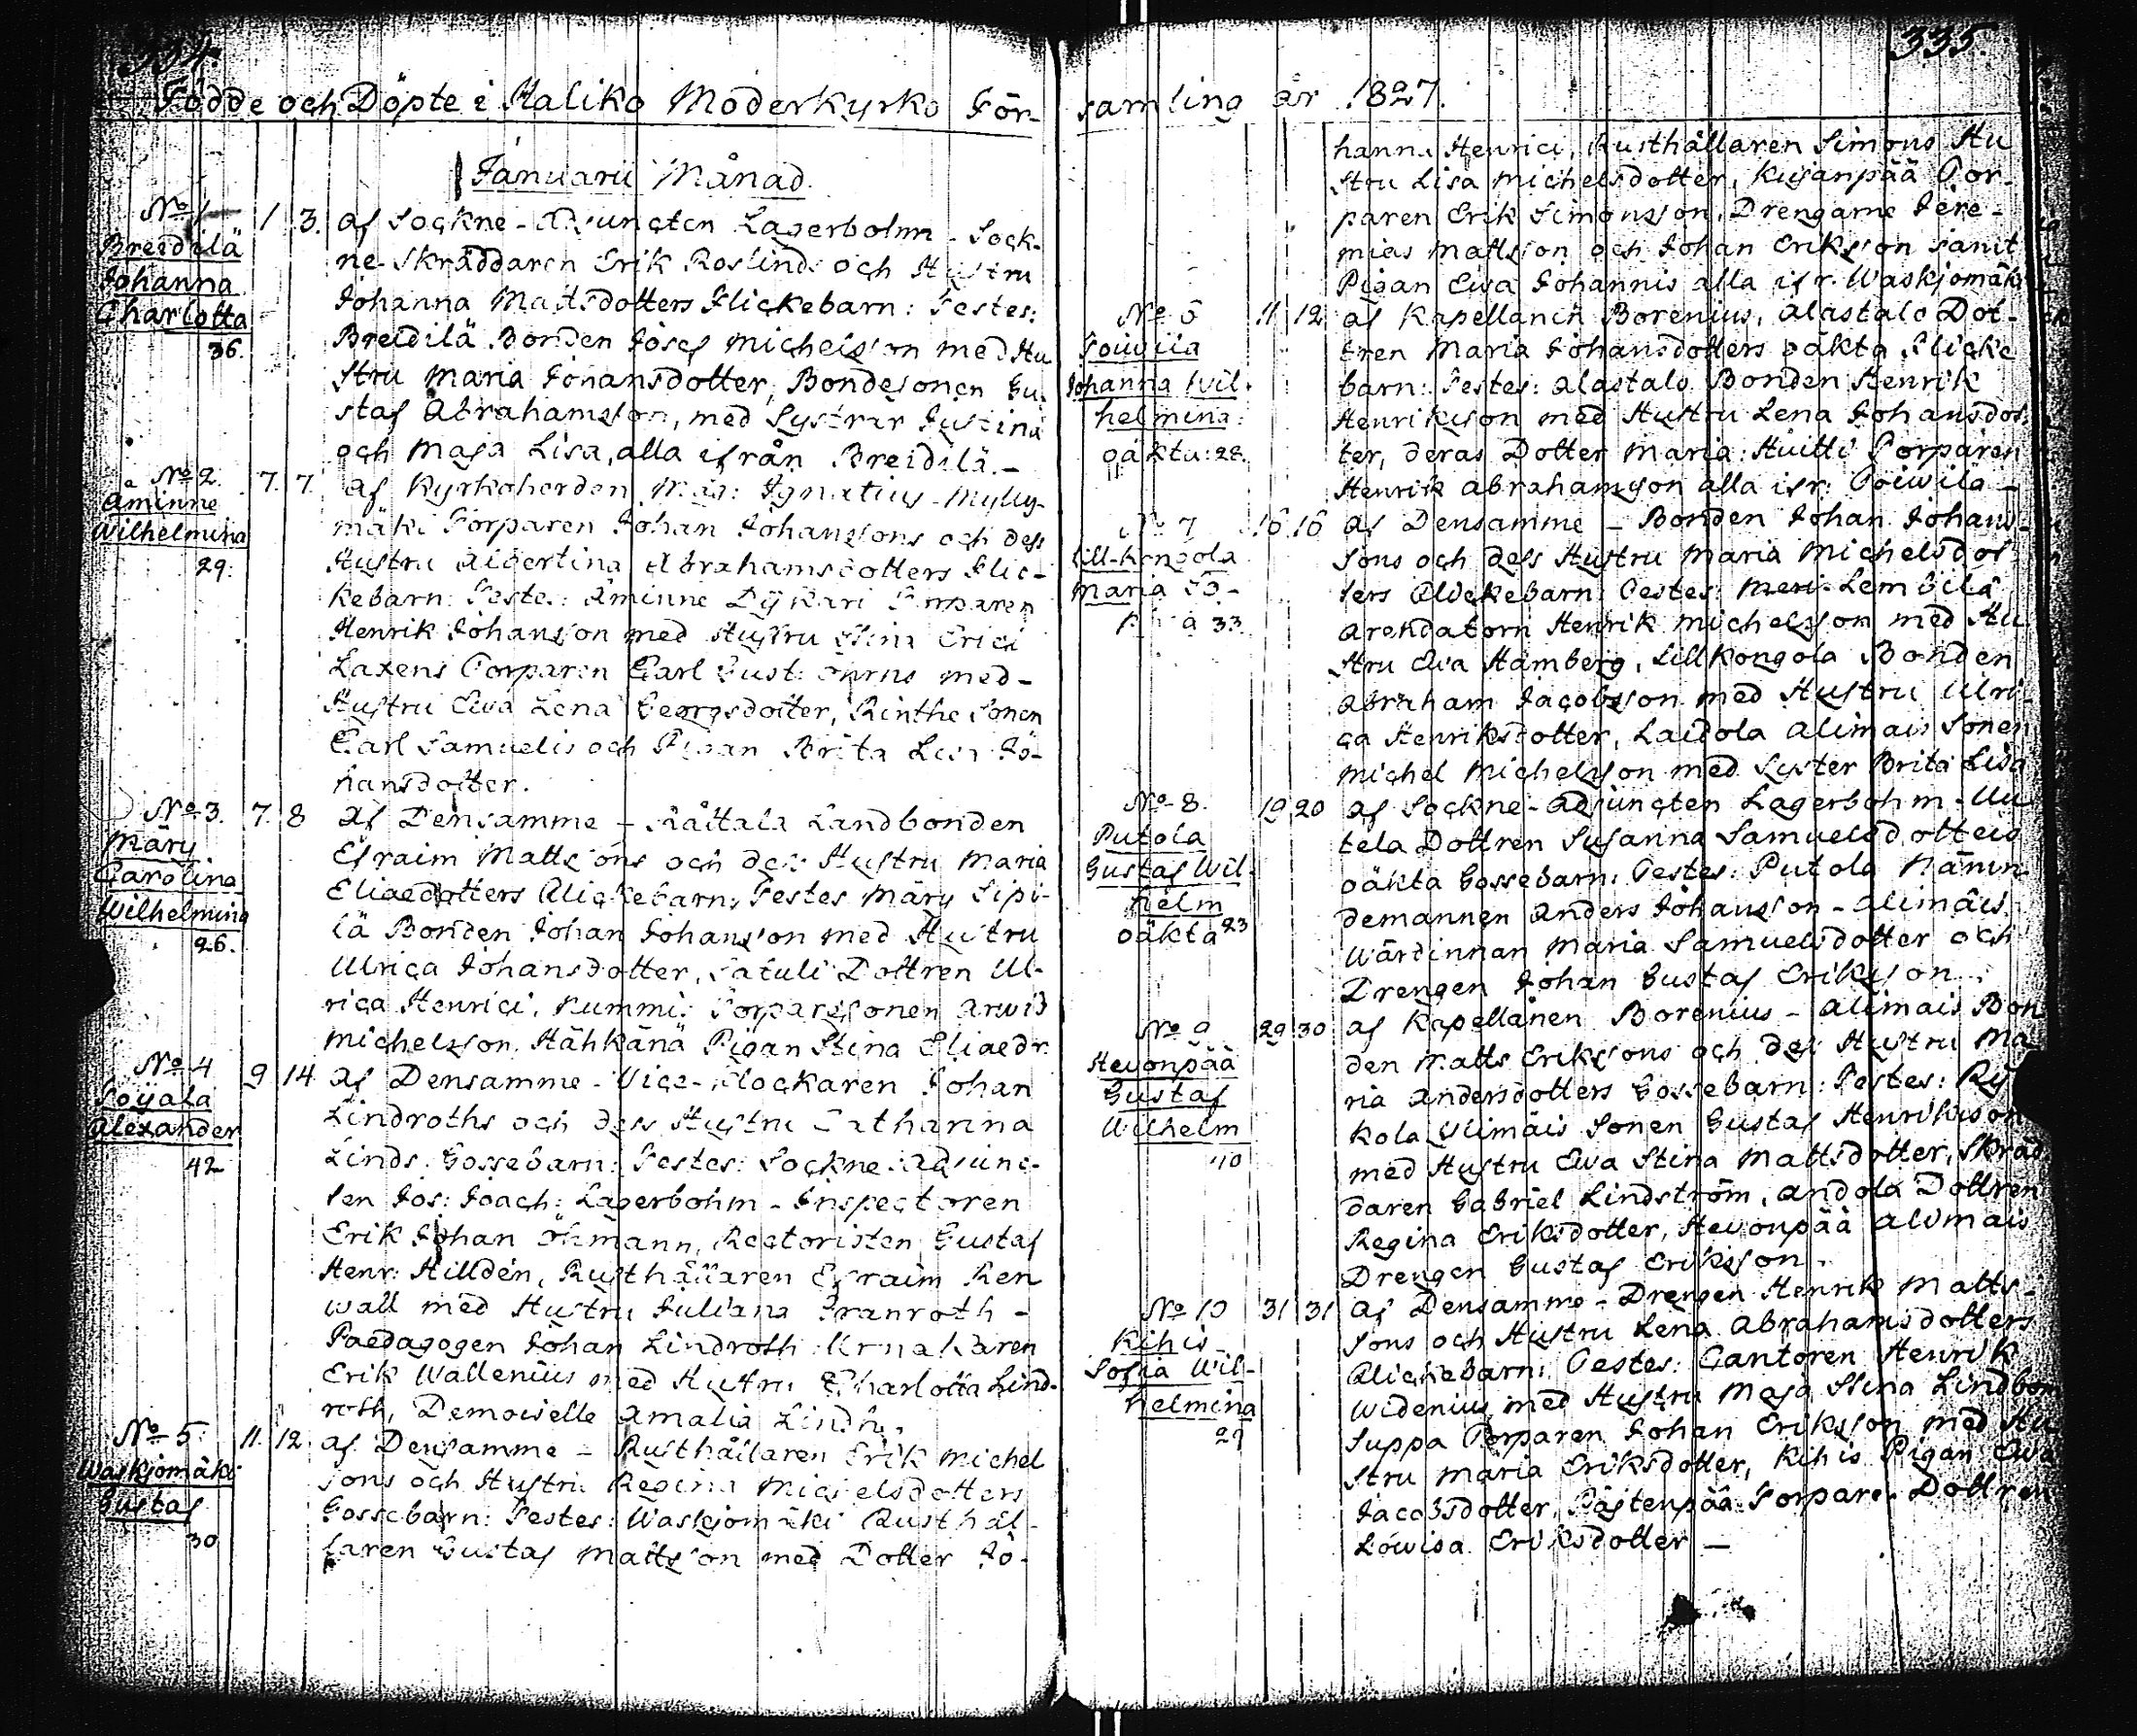 334.
Födde och Döpte i Haliko Moderkyrko För-
Januarii Månad.
No 1
Breidilä
Johanna
Charlotta
36.
1. 3. af Sockne-Adjuncten Lagerbohm - Sock-
ne-Skräddaren Erik Roslinds och Hustru
Johanna Mattsdotters Flickebarn: Testes:
Breidilä Bonden Josef Michelsson med Hu
stru Maria Johansdotter, Bondesonen Gu-
staf Abrahamsson, med Systrar Justina
och Maja Lisa, alla ifrån Breidilä.-
No 2.
Åminne
Wilhelmina
29.
7. 7. af Kyrkoherden Mag: Ignatius - Mylly-
mäki Torparen Johan Johanssons och dess
Hustru Albertina Abrahamsdotters Flic-
kebarn: Testes: Åminne Torparen
Henrik Johansson med Hustru Stina Erici
Laxens Torparen Carl Gust: med-
Hustru Ewa Lena Georgsdotter, Rinthe Sonen
Carl Samuelis och Pigan Brita Lisa Jo-
hansdotter.
No 3.
Märy
Carolina
Wilhelmina
26.
7. 8 af Densamme - Landbonden
Efraim Mattsons och dess Hustru Maria
Eliaedotters Flickebarn: Testes Märy Sipi-
lä Bonden Johan Johansson med Hustru
Ulrica Johansdotter, Satuli Dottren Ul-
rica Henrici, Nummi: Torparesonen Arwid
Michelsson, Hähkänä Pigan Stina Eliaedr.
No 4
Söyälä
Alexander
42
9 14 af Densamme - Vice-Klockaren Johan
Lindroths och dess Hustru Catharina
Linds. Gossebarn: Testes: Sockne-Adjunc-
ten Jos: Joach: Lagerbohm - Inspectoren
Erik Johan Öhmann, Rectoristen Gustaf
Henr: Hilldén, Rusthållaren Efraim Ren
wall med Hustru Juliana Granroth -
Paedagogen Johan Lindroth
Erik Wallenius med Hustru Charlotta Lind-
roth, Demoiselle Amalia Lindh.
No 5.
Waskjomäki
Gustaf
30
11. 12. af Densamme - Rusthållaren Erik Michel
sons och Hustru Regina Michelsdotters
Gossebarn: Testes: Waskjomäki Rusthål-
laren Gustaf Mattsson med Dotter Jo-
335.
samling år 1827.
hanna Henrici, Rusthållaren Simons Hu
stru Lisa Michelsdotter, Kusanpää Tor-
paren Erik Simonsson, Drengarne Jere-
mias Mattsson och Johan Eriksson samt
Pigan Ewa Johannis alla ifr. Waskjomäki
No 6
Toiwila
Johanna Wil-
helmina
oäkta: 28.
11 12 af Kapellanen Borenius, Alastalo Dot-
tren Maria Johansdotters oäkta Flicke
barn: Testes: Alastalo Bonden Henrik
Henriksson med Hustru Lena Johansdot-
ter, deras Dotter Maria: Huitti Torparen
Henrik Abrahamsson alla ifr: Toiwila -
No 7
Lill-Kongola
Maria
33
16 16 af Densamme - Bonden Johan Johans-
sons och dess Hustru Maria Michelsdot-
ters Flickebarn: Testes: Meri-Lemböilä
Arendatorn Henrik Michelsson med Hu
stru Ewa Hamberg, Lillkongola Bonden
Abraham Jacobsson med Hustru Ulri-
ca Henriksdotter, Laidola Alimais Sonen
Michel Michelsson med Syster Brita Lisa
No 8.
Putola
Gustaf Wil-
helm
oäkta 23
19 20 af Sockne-Adjuncten Lagerbohm - Uu
tela Dottren Susanna Samuelsdotters
oäkta Gossebarn: Testes: Putola Nämn-
demannen Anders Johansson - Alimais
Wärdinnan Maria Samuelsdotter och
Drengen Johan Gustaf Eriksson.
No 9
Hevonpää
Gustaf
Wilhelm
40
29 30 af Kapellanen Borenius - Alimais Bon
den Matts Erikssons och dess Hustru Ma
ria Andersdotters Gossebarn: Testes: Ry
kola Ylimäis Sonen Gustaf Henriksson
med Hustru Ewa Stina Mattsdotter, Skräd
daren Gabriel Lindström, Andola Dottren
Regina Eriksdotter, Hevonpää Alimais
Drengen Gustaf Eriksson.
No 10
Kihis
Sofia Wil-
helmina
27
31 31 af Densamme - Drengen Henrik Matts-
sons och Hustru Lena Abrahamsdotters
Flickebarn: Testes: Cantoren Henrik
Widenius med Hustru Maja Stina Lindbom
Suppa Torparen Johan Eriksson med Hu
stru Maria Eriksdotter, Kihis Pigan Ewa
Jacobsdotter, Torpare Dottren
Lowisa Eriksdotter -